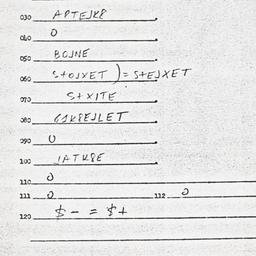 030 APTEJK8
040 O
050 BOJNE
060 S+OJXET ) = S+EJXET
070 S+XITE
080 GJK8EJLET
090 O
100 JATK8E
110 O
111 O 112 O
120 $ - = $+